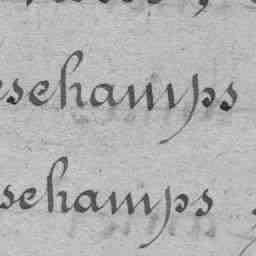 eschamps
schamps